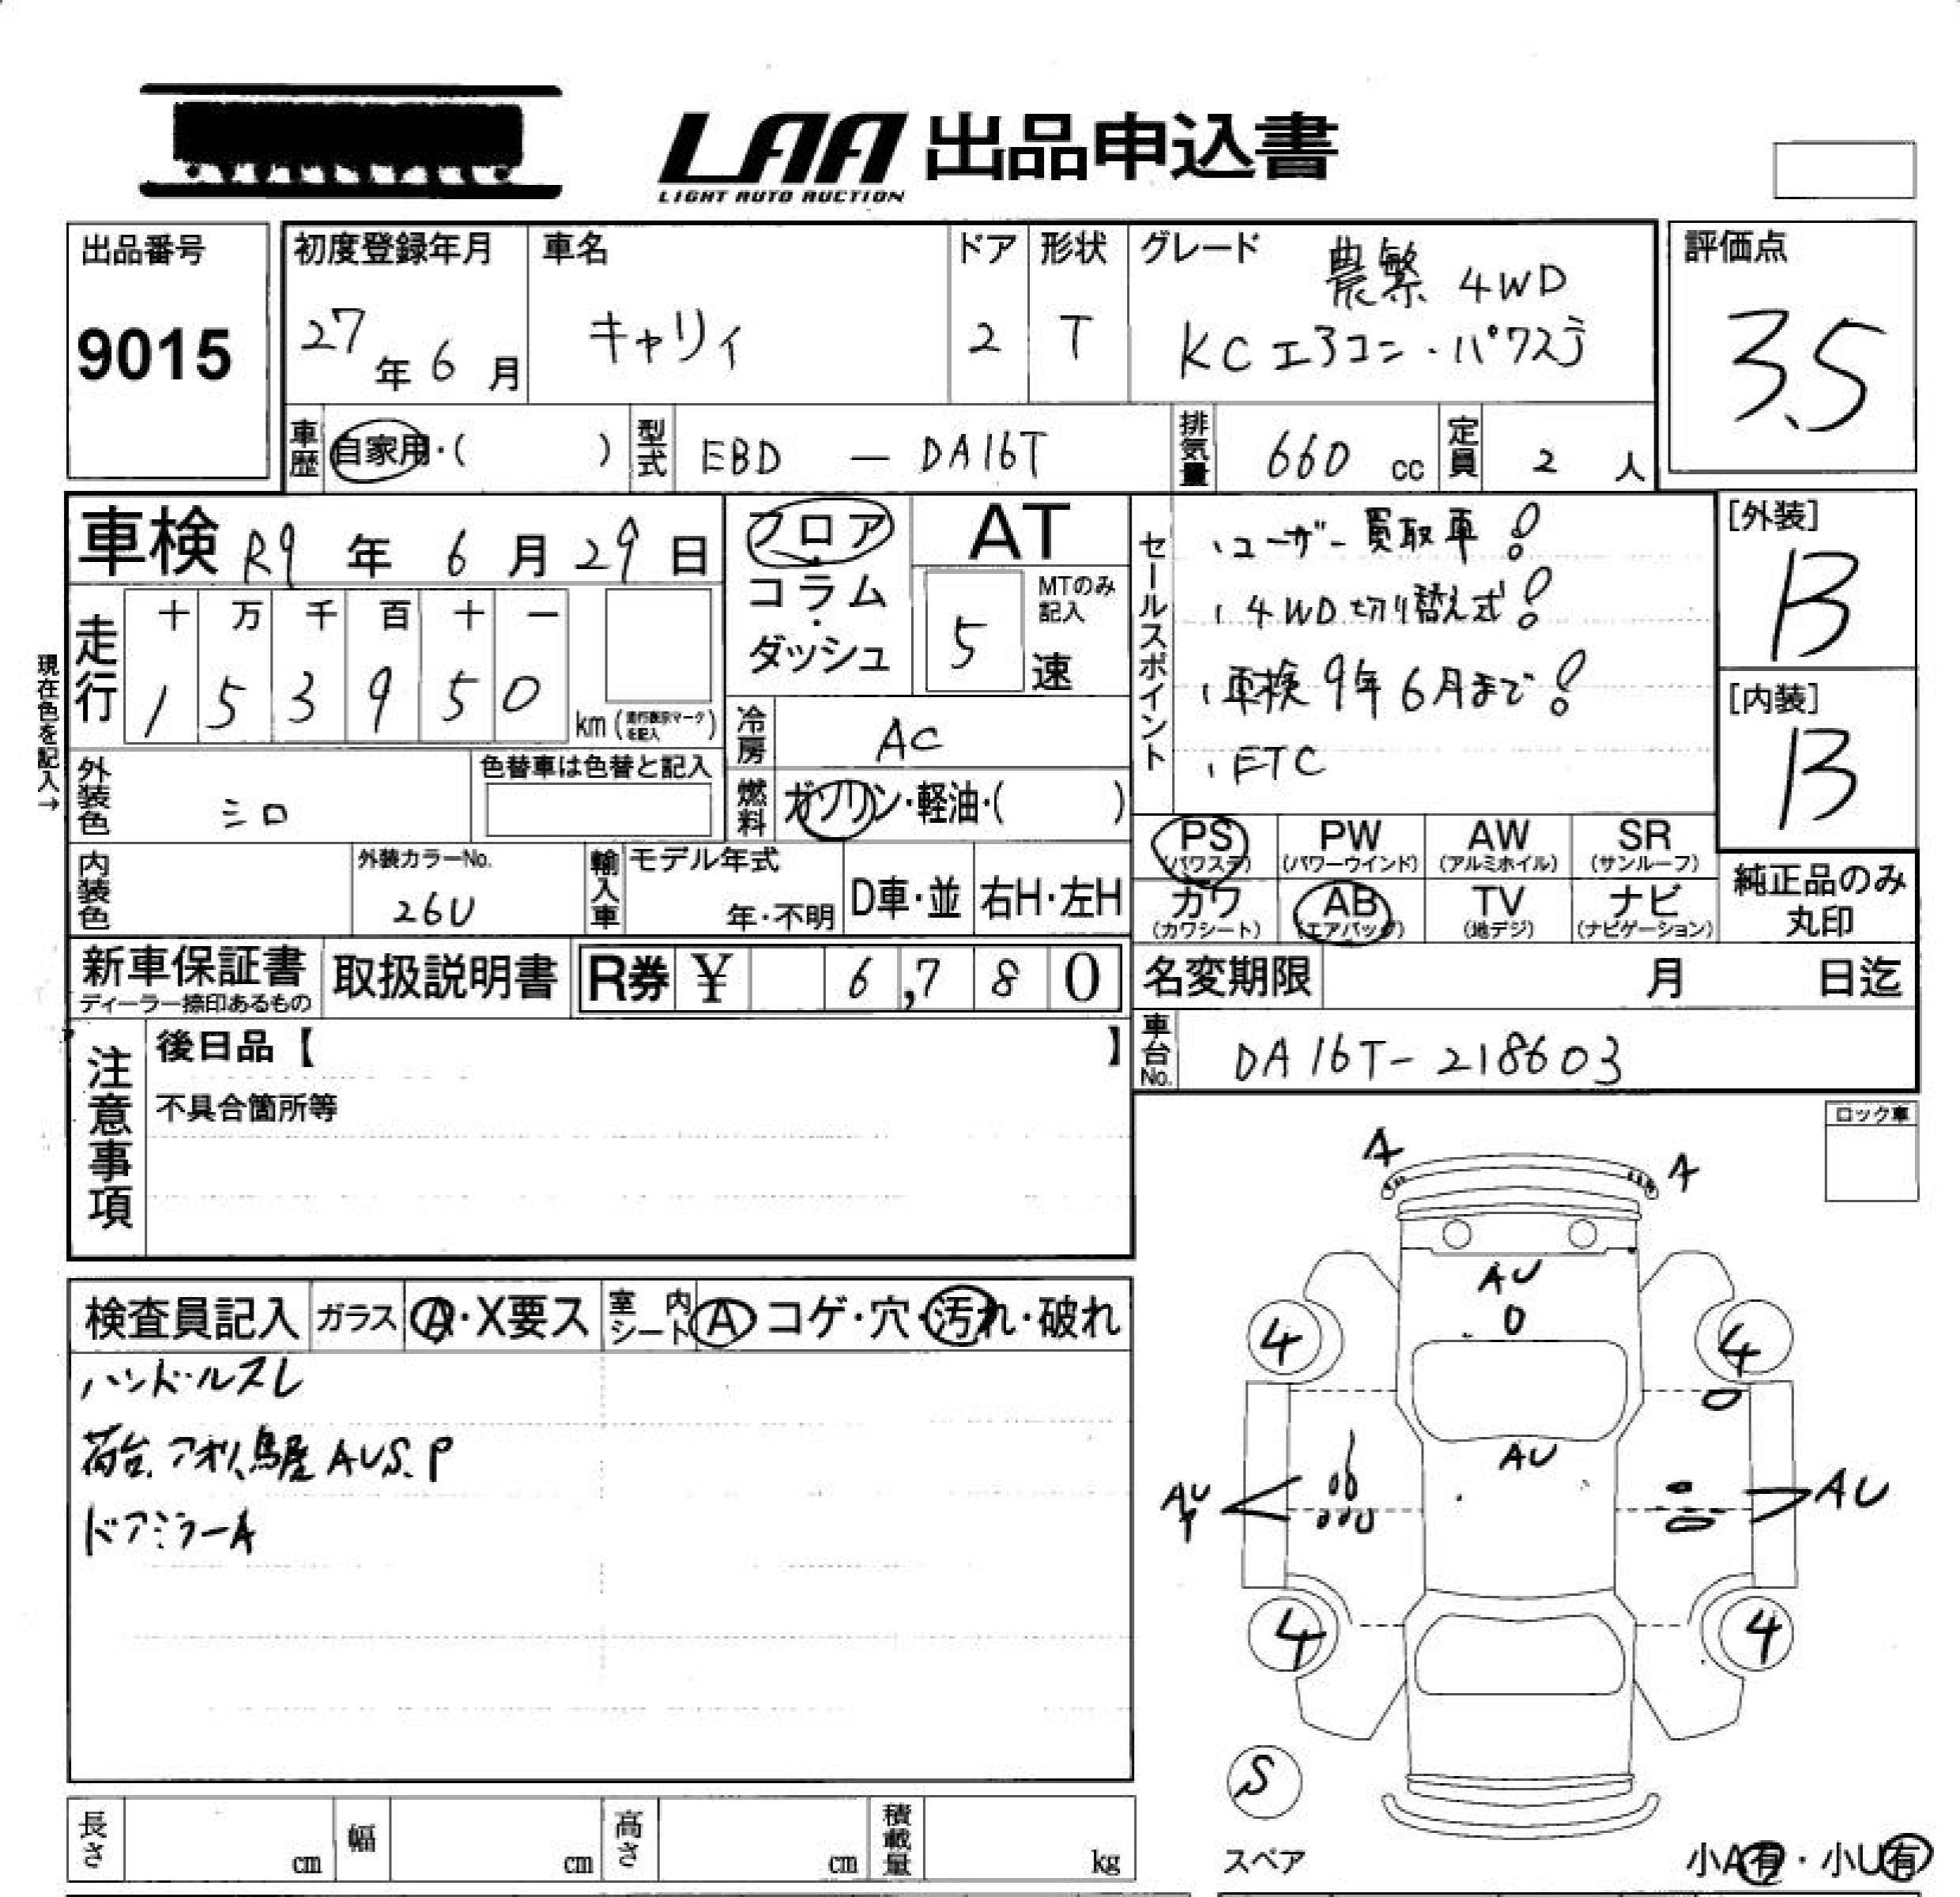 LAA 出品申込書
LIGHT AUTO AUCTION
出品番号
9015
初度登録年月
27年6月
車名
キャリィ
ドア
2
形状
T
グレード
農繁 4WD
KCエアコン・パワステ
評価点
3.5
車歴
自家用・( )
型式
EBD — DA16T
排気量
660 cc
定員
2 人
車検 R9年 6月 29日
フロア・コラム・ダッシュ
AT
5
MTのみ記入
速
セールスポイント
・ユーザー買取車!
・4WD切り替え式!
・車検9年6月まで!
・ETC
[外装]
B
[内装]
B
現在色を記入→
走行
十 万 千 百 十 一
1 5 3 9 5 0
km (走行表示マークを記入)
冷房
AC
燃料
ガソリン・軽油・( )
外装色
シロ
色替車は色替と記入
内装色
外装カラーNo.
26U
輸入車
モデル年式
年・不明
D車・並
右H・左H
PS (パワステ)
PW (パワーウインド)
AW (アルミホイル)
SR (サンルーフ)
カワ (カワシート)
AB (エアバッグ)
TV (地デジ)
ナビ (ナビゲーション)
純正品のみ丸印
新車保証書
ディーラー捺印あるもの
取扱説明書
R券 ¥ 6,780
名変期限 月 日迄
車台No.
DA16T-218603
注意事項
後日品【 】
不具合箇所等
ロック車
検査員記入
ガラス
A・X要ス
室内シート
A コゲ・穴・汚れ・破れ
ハンドルスレ
荷台、アオリ、鳥居 AUS.P
ドアミラーA
A
A
AU
4
4
AU
AU
AU
4
4
S
スペア
小A有・小U有
長さ cm
幅 cm
高さ cm
積載量 kg